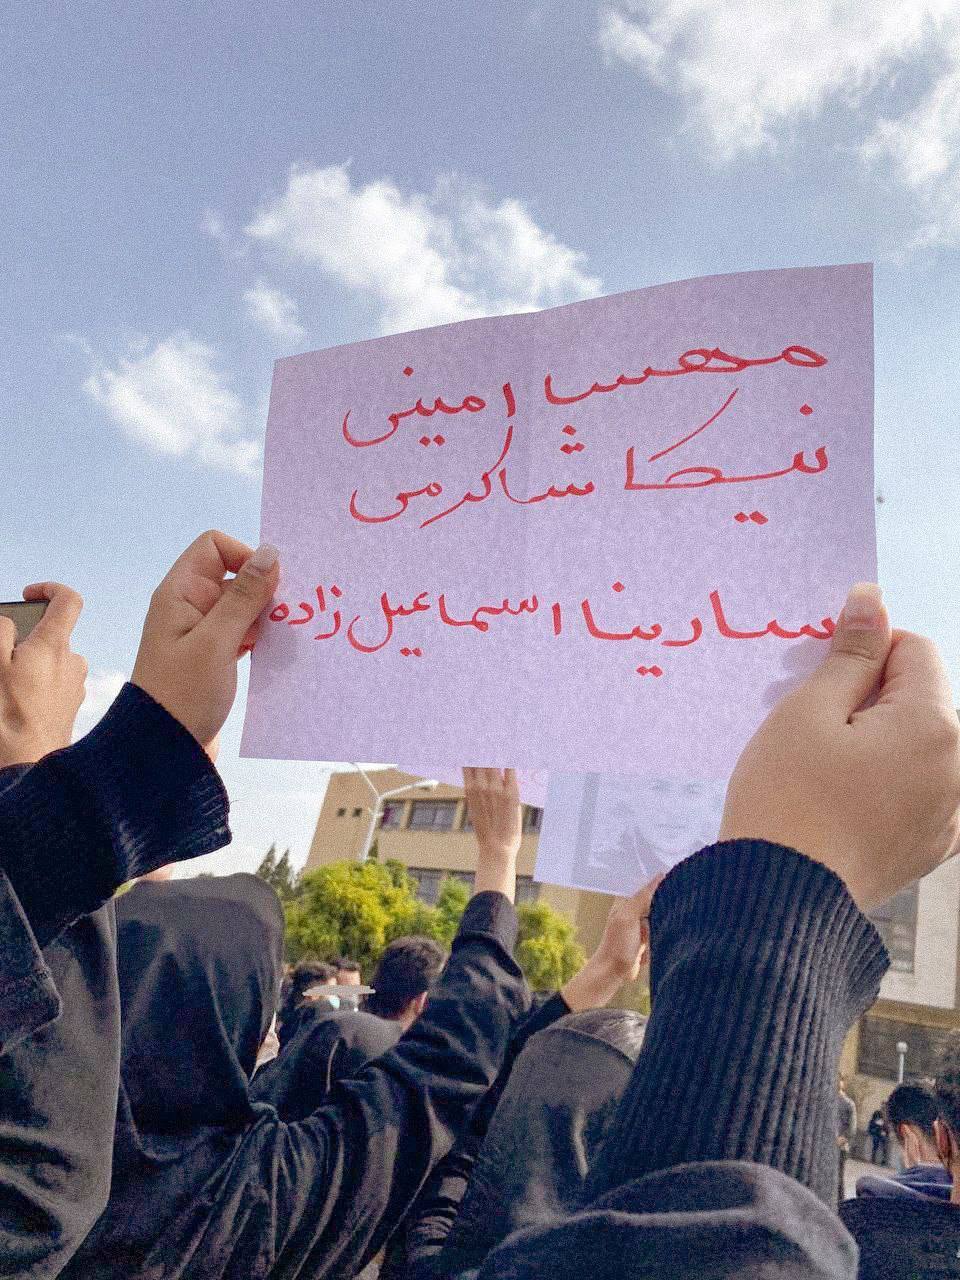 مهسا امینی
نیکا شاکرمی
سارینا اسماعیل زاده